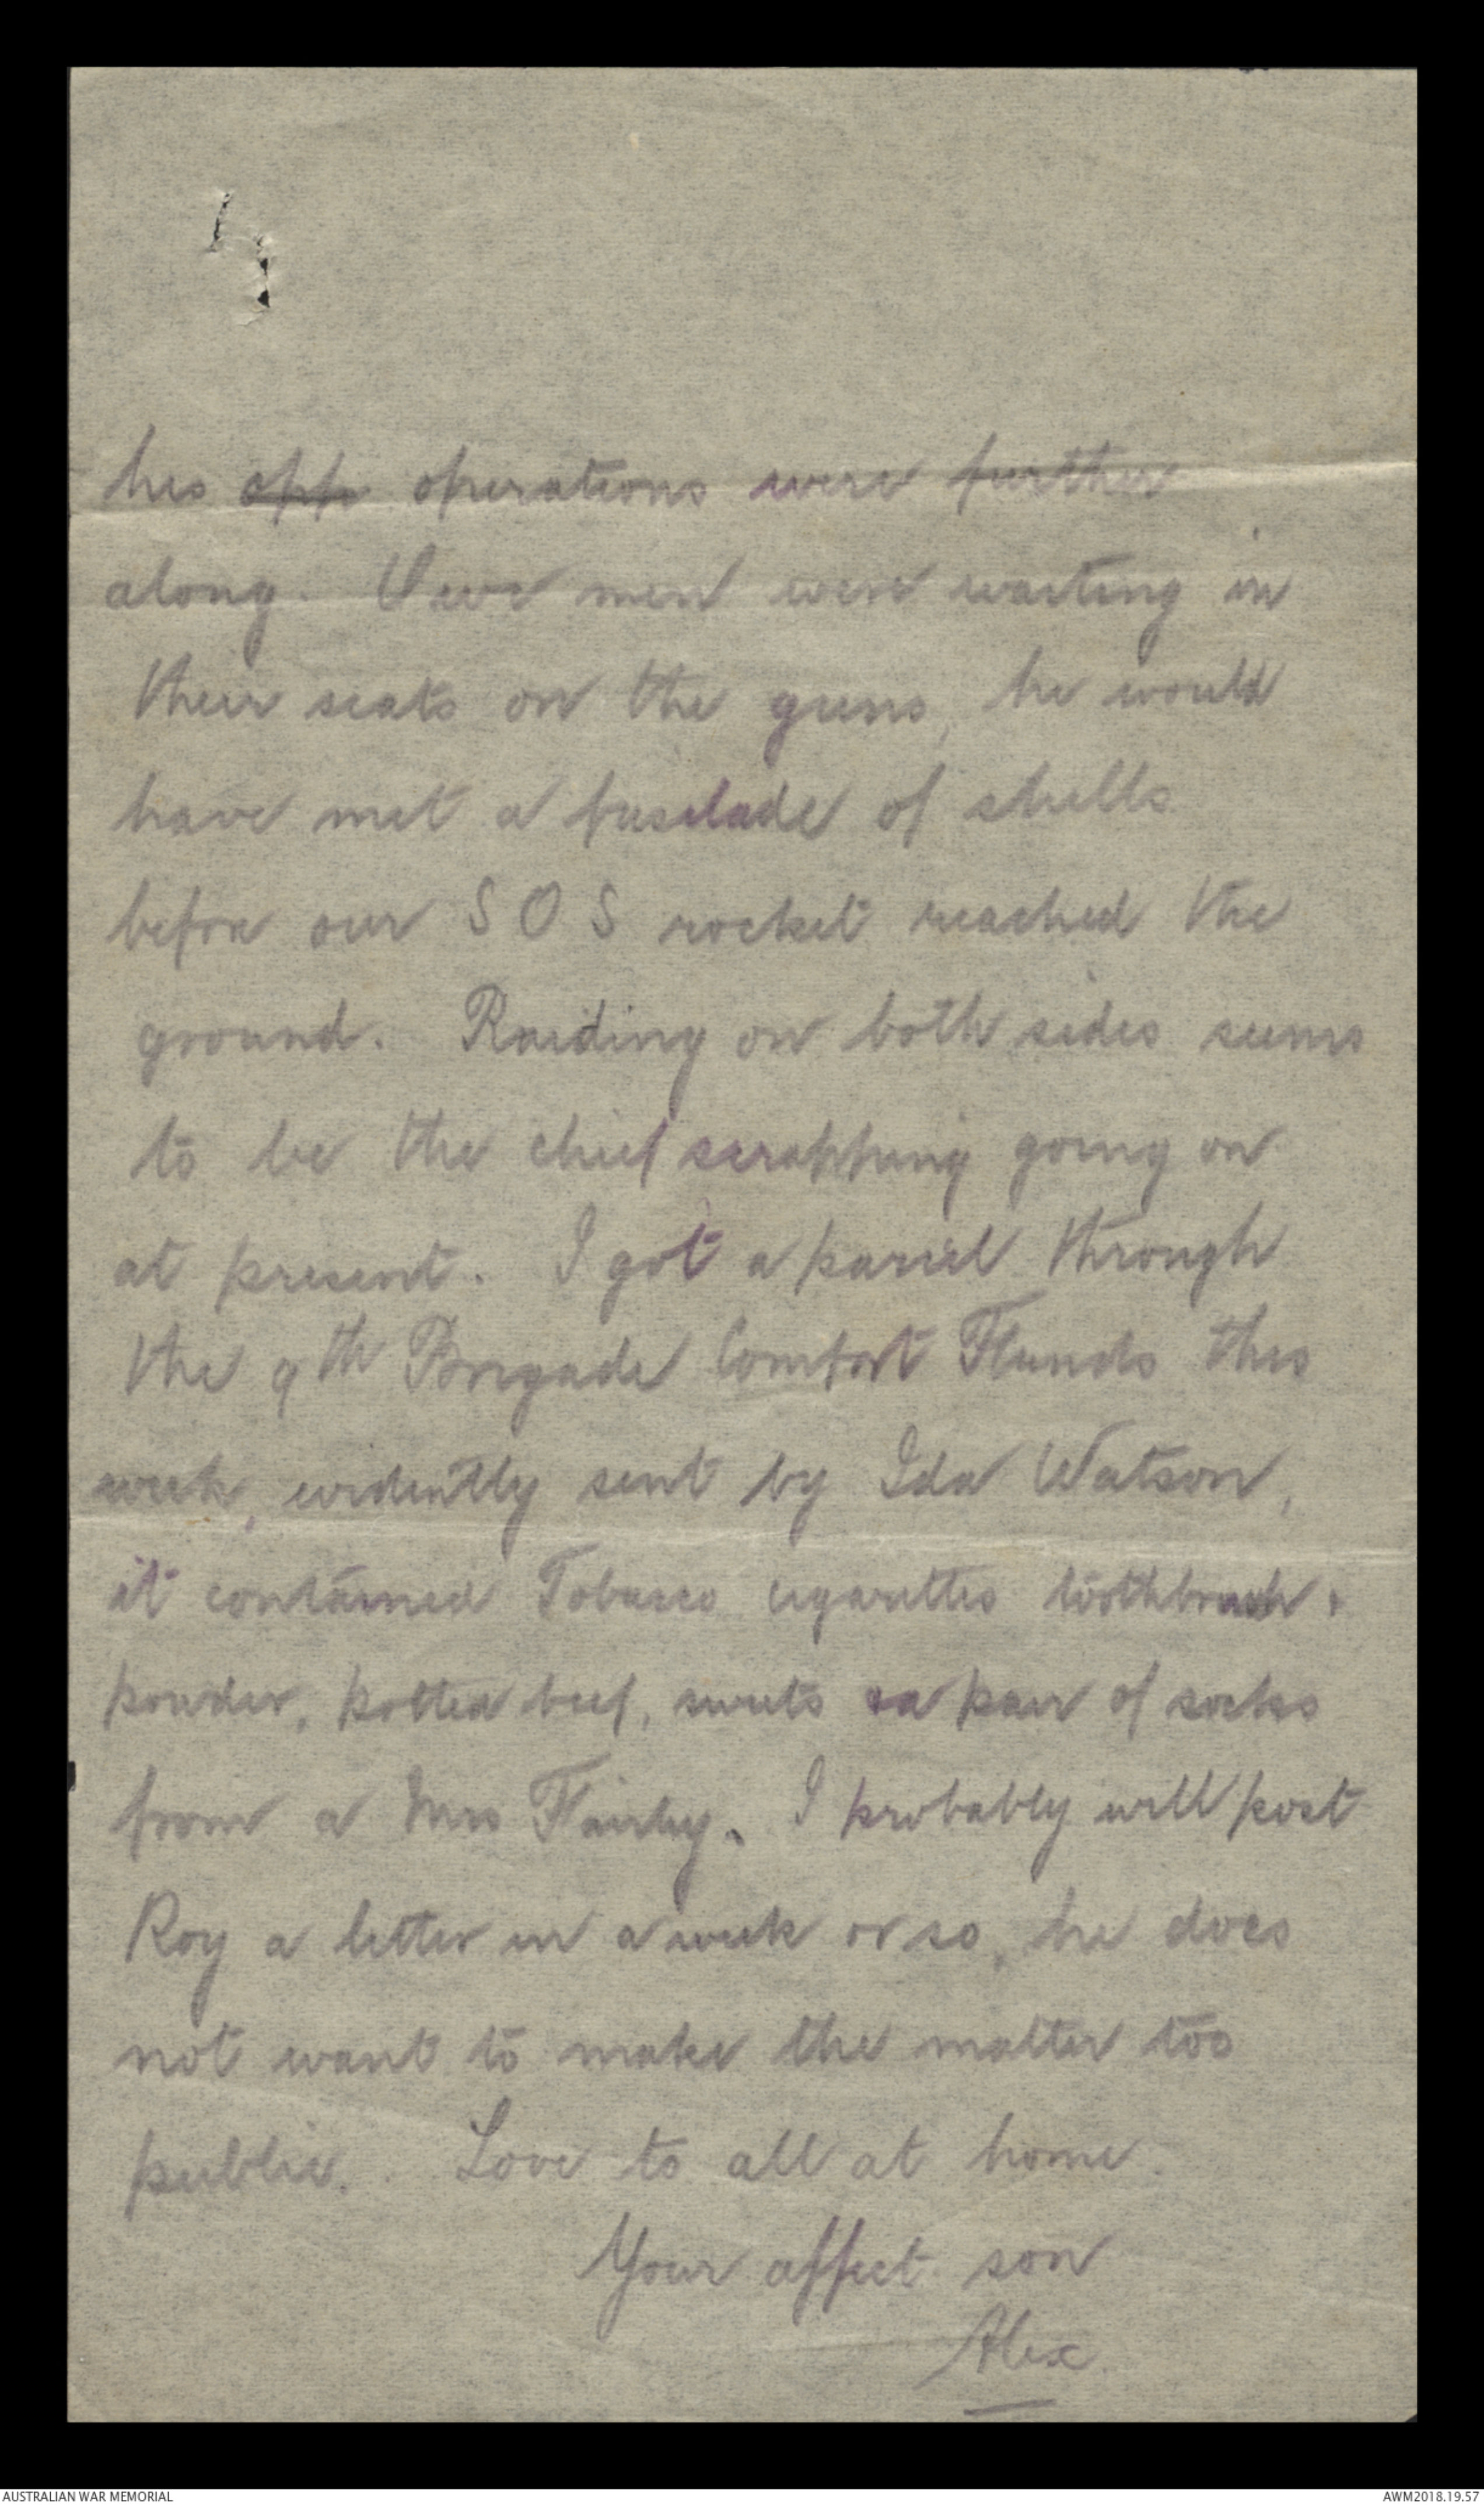 his opp operations were further
along. men were waiting in
their seats on the guns, he would
have met a fusilade of shells
before our S O S rocket reached the
ground. Raiding on both sides seems
to be the chief scrapping going on
at present. I got a parcel through
the 9th Brigade Comfort Funds this
week, evidently sent by Ida Watson,
it contained Tobacco cigarettes toothbrush +
powder, potted beef, sweets & a pair of socks
from a Mrs Fairley. I probably will post
Roy a letter in a week or so, he does
not want to make the matter too
public. Love to all at home.
Your affect son
Alex.
AUSTRALIAN WAR MEMORIAL
AWM2018.19.57